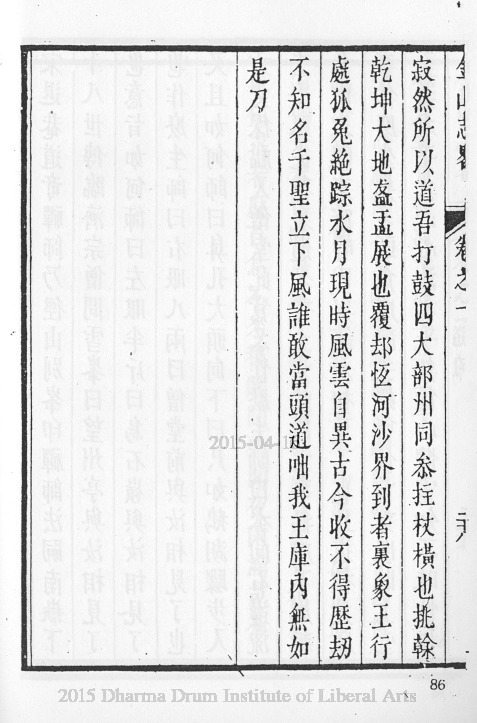 金山志畧 卷之一 二十八
寂然所以道吾打鼓四大部州同叅拄杖橫也挑斡
乾坤大地盋盂展也覆却恆河沙界到者裏象王行
處狐兔絶踪水月現時風雲自異古今收不得歴刼
不知名千聖立下風誰敢當頭道咄我王庫內無如
是刀
2015-04-1
86
2015 Dharma Drum Institute of Liberal Arts